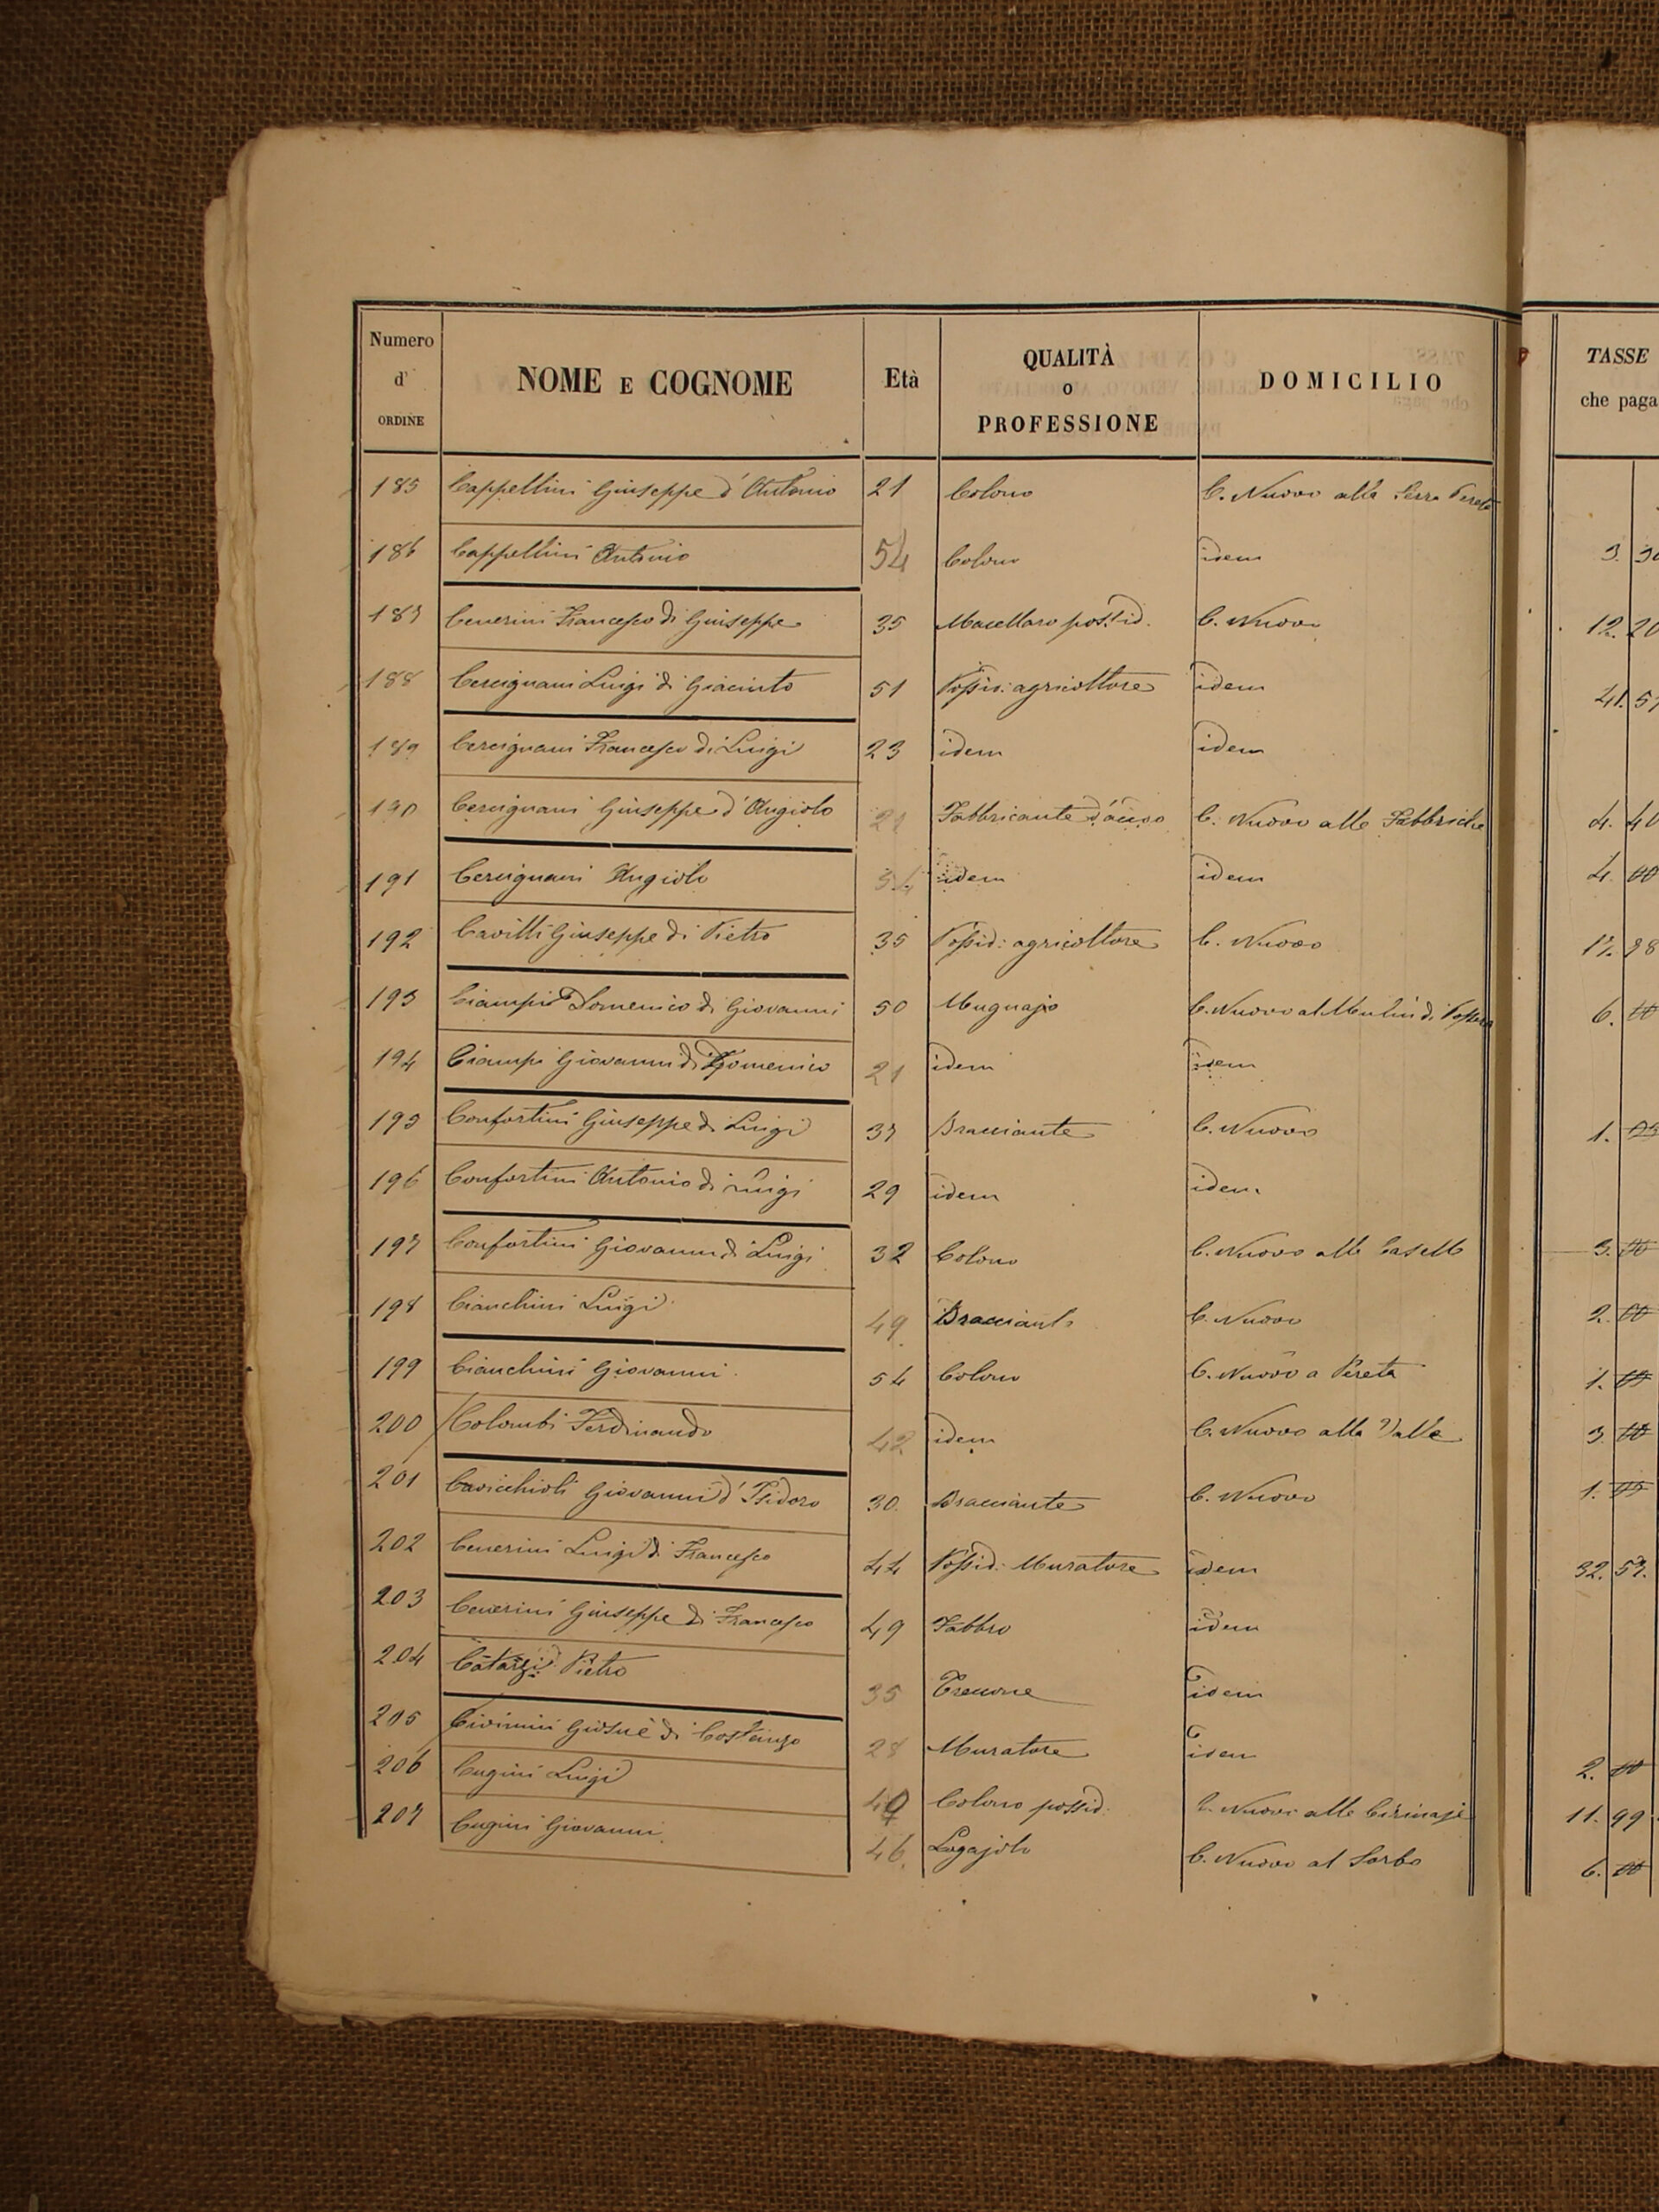 Numero d' ORDINE NOME E COGNOME Età QUALITÀ O PROFESSIONE DOMICILIO TASSE che paga
185 Cappellini Giuseppe d'Antonio 21 Colono C. Nuovo alla Serra
186 Cappellini Antonio 54 Colono idem 3.
187 Cenerini Francesco di Giuseppe 35 Macellaro possid. C. Nuovo 12. 20
188 Cercignani Luigi di Giacinto 51 Possid: agricoltore idem 41. 57
189 Cercignani Francesco di Luigi 23 idem idem
190 Cercignani Giuseppe d'Angiolo 21 Fabbricante C. Nuovo alle Fabbriche 4. 40
191 Cercignani Angiolo 54 idem idem 4. 00
192 Cavitti Giuseppe di Pietro 35 Possid: agricoltore C. Nuovo 88
193 Ciampi Domenico di Giovanni 50 Mugnajo C. Nuovo al Mulin di 6. 00
194 Ciampi Giovanni di Domenico 21 idem idem
195 Confortini Giuseppe di Luigi 37 Bracciante C. Nuovo 1.
196 Confortini Antonio di Luigi 29 idem idem
197 Confortini Giovanni di Luigi 32 Colono C. Nuovo alle Caselle 3. 00
198 Cianchini Luigi 49 Bracciante C. Nuovo 2. 00
199 Cianchini Giovanni 54 Colono C. Nuovo a Pereta 1. 00
200 Colombi Ferdinando 42 idem C. Nuovo alla Valle 3. 00
201 Cavicchioli Giovanni d'Isidoro 30 Bracciante C. Nuovo 1.
202 Cenerini Luigi di Francesco 44 Possid: Muratore idem 32. 57.
203 Cenerini Giuseppe di Francesco 49 Fabbro idem
204 Catarzi Pietro 35 Treccone idem
205 Civinini Giosuè di Costanzo 28 Muratore idem 2. 00
206 Cugini Luigi Colono possid. C. Nuovo alle 11. 99
207 Cugini Giovanni 46. C. Nuovo al Sorbo 6. 00